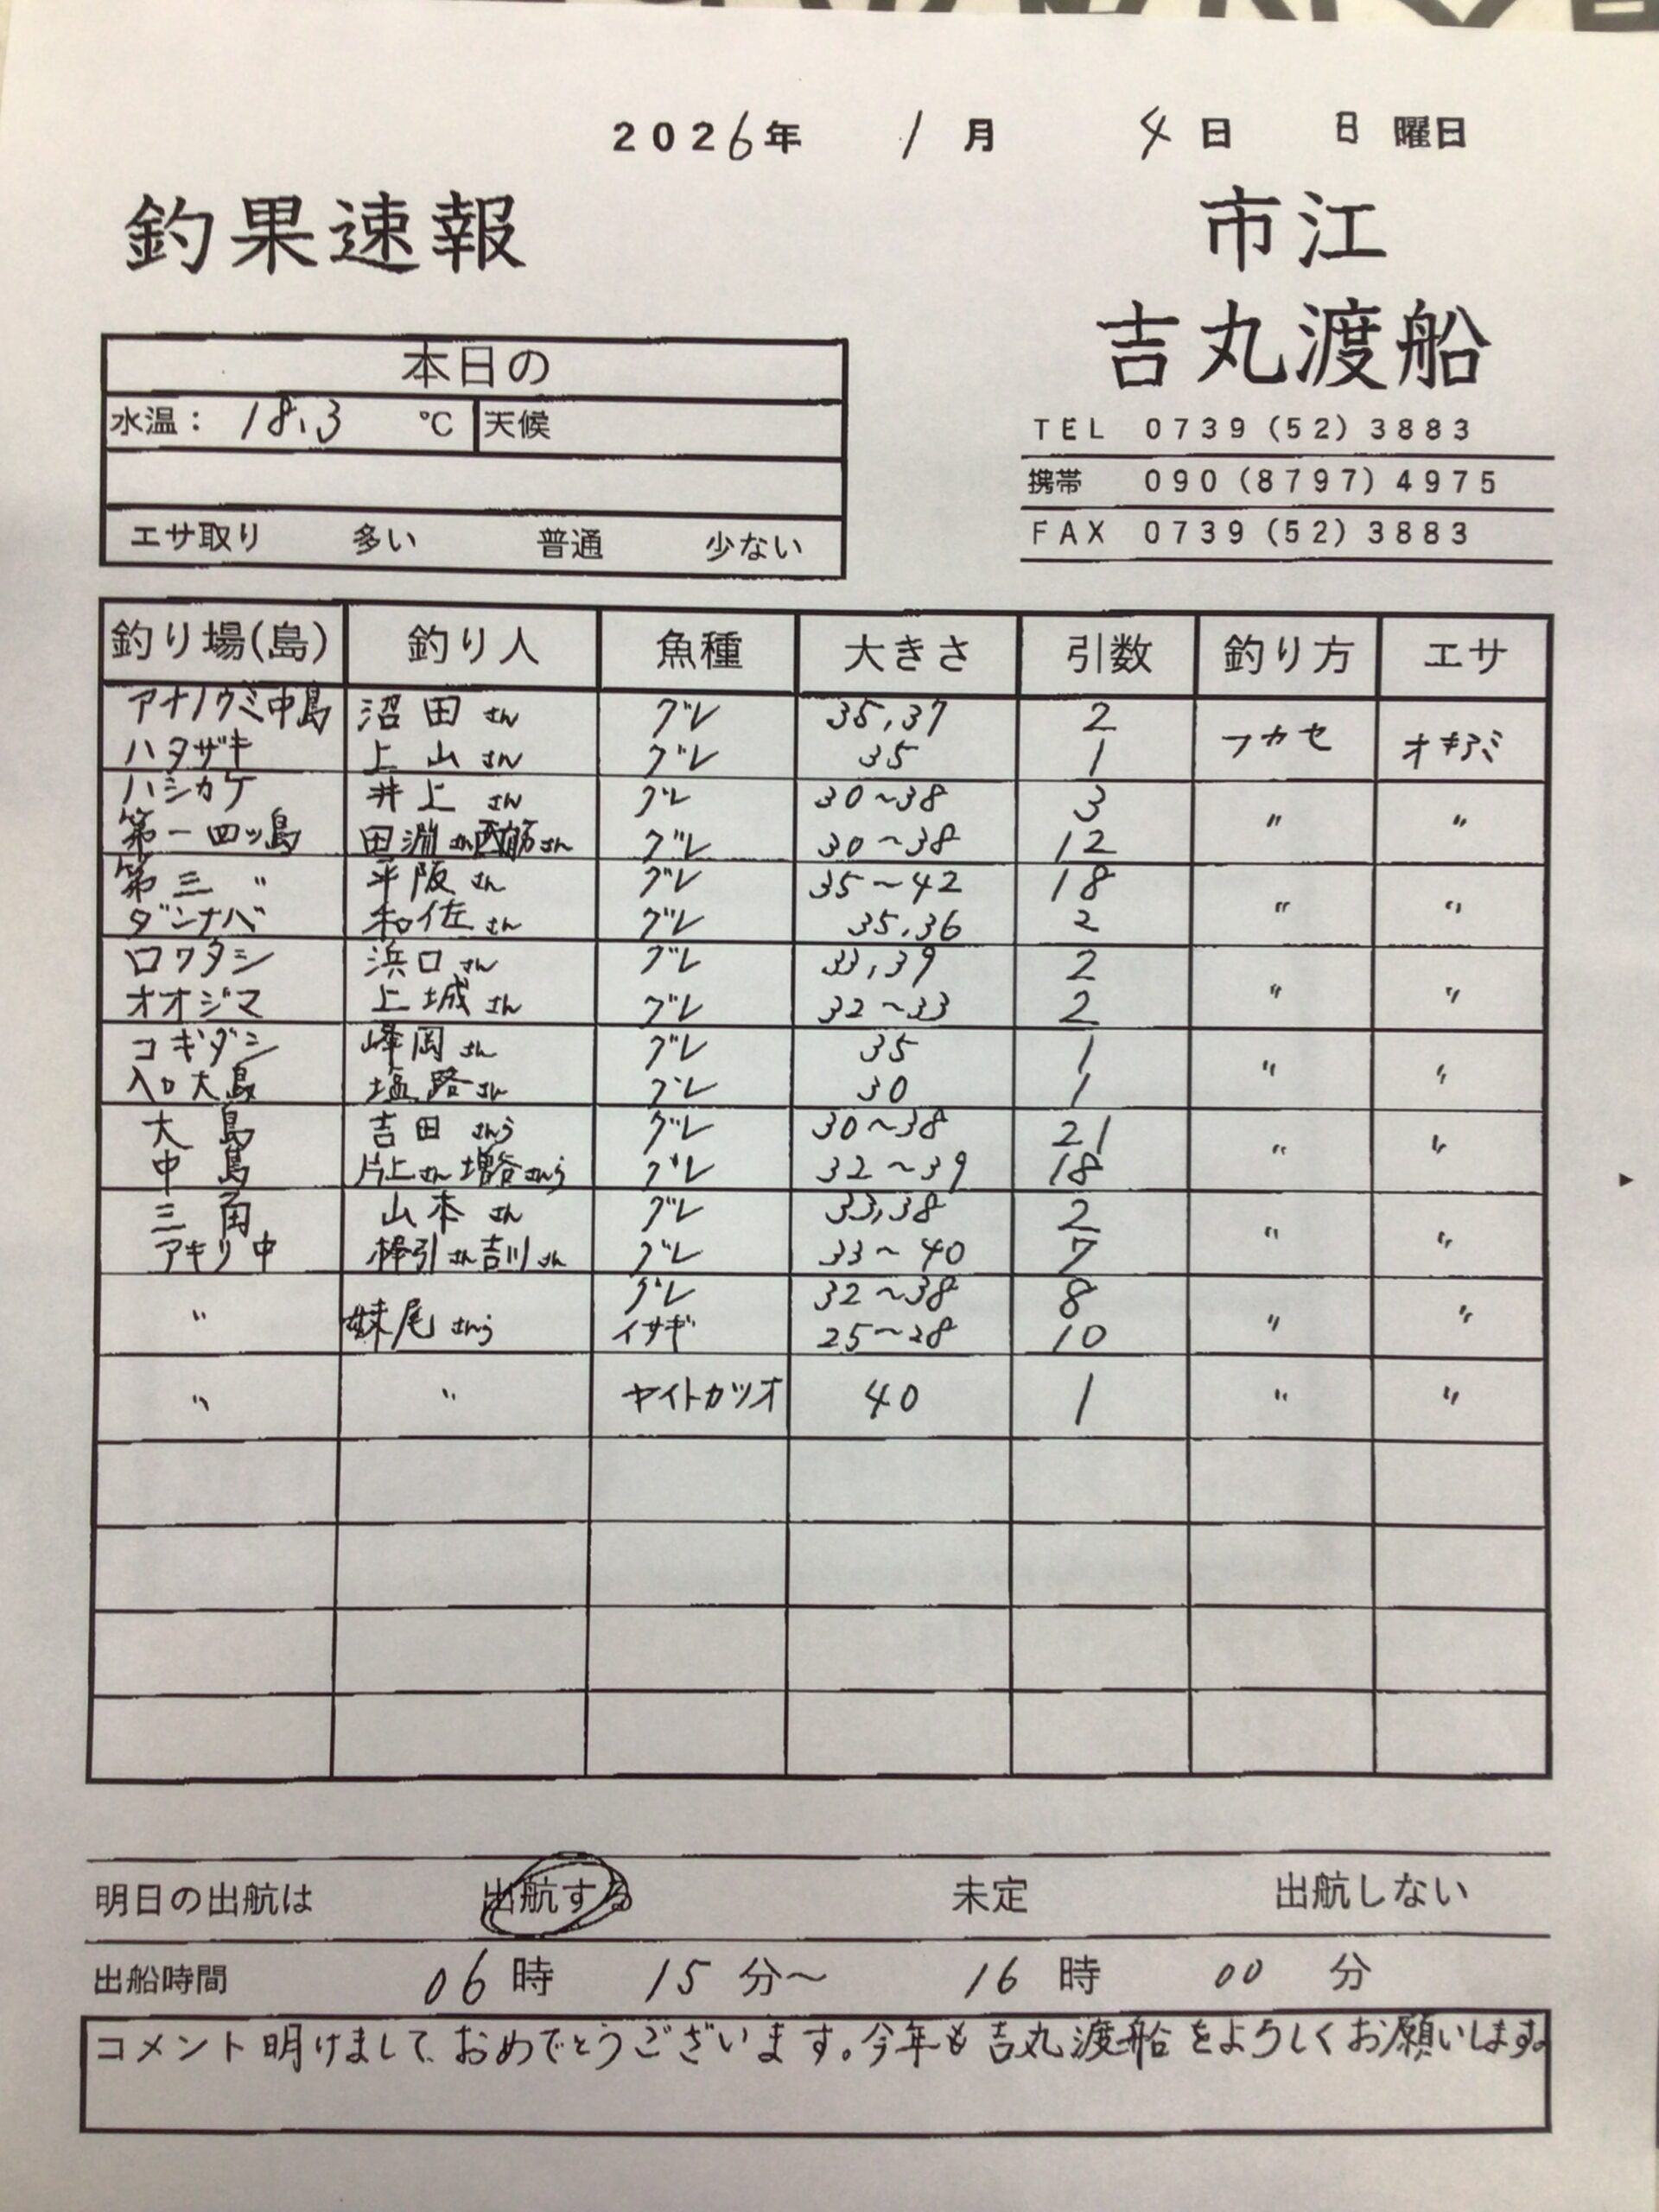 2026年 1月 4日 日曜日
釣果速報
市江
吉丸渡船
本日の
水温： 18.3 ℃ 天候
エサ取り 多い 普通 少ない
TEL 0739(52)3883
携帯 090(8797)4975
FAX 0739(52)3883
釣り場(島) 釣り人 魚種 大きさ 引数 釣り方 エサ
アナノウミ中島 沼田さん グレ 35,37 2 フカセ オキアミ
ハタザキ 上山さん グレ 35 1
ハシカケ 井上さん グレ 30~38 3 〃 〃
第一四ッ島 田淵さん さん グレ 30~38 12
第三〃 平阪さん グレ 35~42 18 〃 〃
ダンナバ 和佐さん グレ 35,36 2
口ワタシ 浜口さん グレ 33,39 2 〃 〃
オオジマ 上城さん グレ 32~33 2
コギダシ 峰岡さん グレ 35 1 〃 〃
入口大島 塩路さん グレ 30 1
大島 吉田さんら グレ 30~38 21 〃 〃
中島 片上さん増谷さんら グレ 32~39 18
三角 山本さん グレ 33,38 2 〃 〃
アキリ中 棒引さん吉川さん グレ 33~40 7
〃 妹尾さんら グレ 32~38 8 〃 〃
イサギ 25~28 10
〃 〃 ヤイトカツオ 40 1 〃 〃
明日の出航は 出航する 未定 出航しない
出船時間 06時 15分～ 16時 00分
コメント 明けまして、おめでとうございます。今年も吉丸渡船をよろしくお願いします。